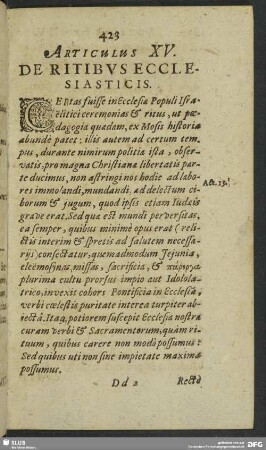 423
ARTICULUS XV.
DE RITIBVS ECCLE-
SIASTICIS.
CERtas fuisse in Ecclesia Populi Isra-
ëlitici ceremonias & ritus, ut pæ-
dagogia quadam, ex Mosis historia
abunde patet: illis autem ad certum tem-
pus, durante nimirum politia ista, obser-
vatis, pro magna Christianæ libertatis par-
te ducimus, non astringi nos hodie ad labo-
res immolandi, mundandi, ad delectum ci-
borum & jugum, quod ipsis etiam Iudæis
grave erat. Sed quæ est mundi perversitas,
ea semper, quibus minime opus erat (reli-
ctis interim & spretis ad salutem necessa-
rijs) consectatur, quemadmodum Jejunia,
eleemosynas, missas, sacrificia, &
plurima cultu prorsus impio aut Idolola-
trico, invexit cohors Pontificia in Ecclesiã,
verbi cælestis puritate interea turpiter ab-
jectâ. Itaq; potiorem suscepit Ecclesia nostra
curam verbi & Sacramentorum, quàm ri-
tuum, quibus carere non modò possumus:
Sed quibus uti non sine impietate maxima
possumus.
Act. 15.
Dd 2 Rectè
SLUB